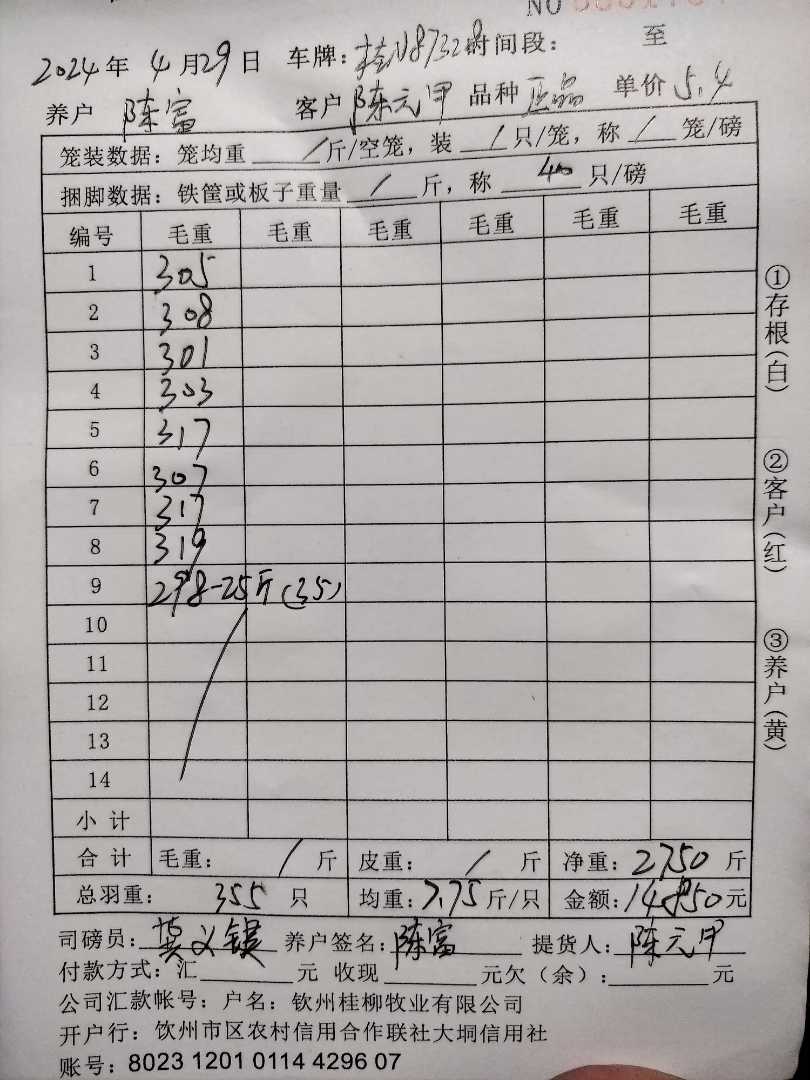 NO
2024年 4月29日 车牌:桂N87328时间段: 至
养户 陈富 客户 陈元甲 品种 正品 单价 5.4
笼装数据:笼均重 / 斤/空笼,装 / 只/笼,称 / 笼/磅
捆脚数据:铁筐或板子重量 / 斤,称 40 只/磅
编号 毛重 毛重 毛重 毛重 毛重 毛重
1 305
2 308
3 301
4 303
5 317
6 307
7 317
8 319
9 298-25斤(35)
10
11
12
13
14
小计
合计 毛重: / 斤 皮重: / 斤 净重: 2750 斤
总羽重: 355 只 均重: 7.75 斤/只 金额: 14850元
司磅员: 莫义锲 养户签名: 陈富 提货人: 陈元甲
付款方式:汇 元 收现 元欠(余): 元
公司汇款帐号:户名:钦州桂柳牧业有限公司
开户行:饮州市区农村信用合作联社大垌信用社
账号:8023 1201 0114 4296 07
①存根(白)
②客户(红)
③养户(黄)